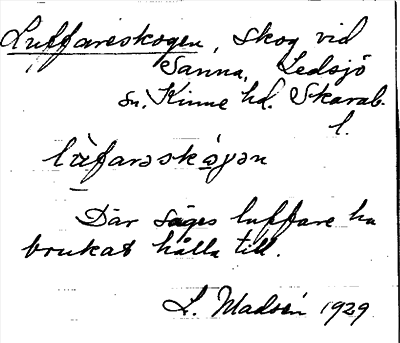 Luffareskogen, skog vid
Sanna, Ledsjö
sn. Kinne hd. Skarab.
l.
lùfarəskògən
Där säges luffare ha
brukat hålla till.
L. Madsén 1929